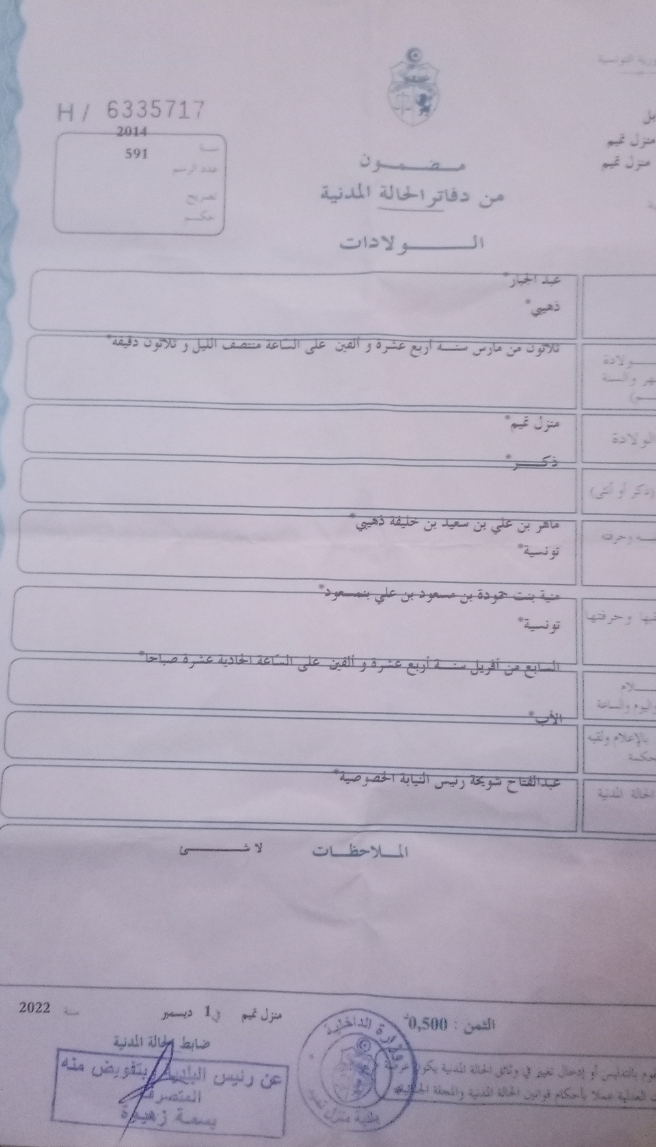 الجمهورية التونسية
H / 6335717
2014
سنة
591
عدد الرسم
تصريح
حكم
منزل تميم
منزل تميم
مضمون
من دفاتر الحالة المدنية
الولادات
عبد الجبار*
ذهيبي*
ثلاثون من مارس سنة أربع عشرة و ألفين على الساعة منتصف الليل و ثلاثون دقيقة*
منزل تميم*
ذكر*
(ذكر أو أنثى)
ماهر بن علي بن سعيد بن خليفة ذهيبي*
تونسية*
منية بنت حمودة بن مسعود بن علي بنمسعود*
تونسية*
السابع من أفريل سنة أربع عشرة و ألفين على الساعة الحادية عشرة صباحا*
واليوم والساعة
الأب*
بالإعلام ولقبه
عبدالفتاح شويخة رئيس النيابة الخصوصية*
الحالة المدنية
الملاحظات لا شئ
الثمن : 0,500*
منزل تميم في 1 ديسمبر سنة 2022
ضابط الحالة المدنية
عن رئيس البلدية بتفويض منه
المتصرف
بسمة زهيرة
وزارة الداخلية
بلدية منزل تميم
بالتدليس أو إدخال تغيير في وثائق الحالة المدنية يكون
العدلية عملا بأحكام قوانين الحالة المدنية والمجلة الجنائية